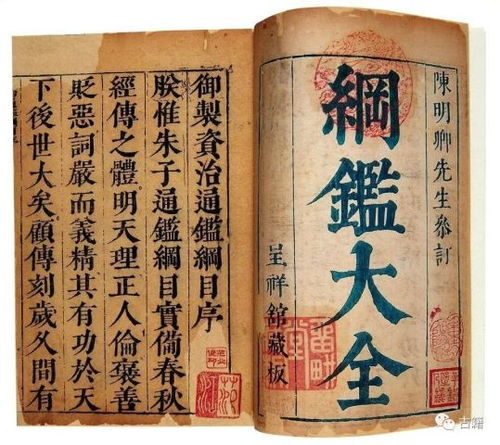 陳明卿先生叅訂
綱鑑大全
呈祥館藏板
御製資治通鑑綱目序
朕惟朱子通鑑綱目實備春秋
經傳之體明天理正人倫褒善
貶惡詞嚴而義精其有功於天
下後世大矣顧傳刻歲久間有
古籍